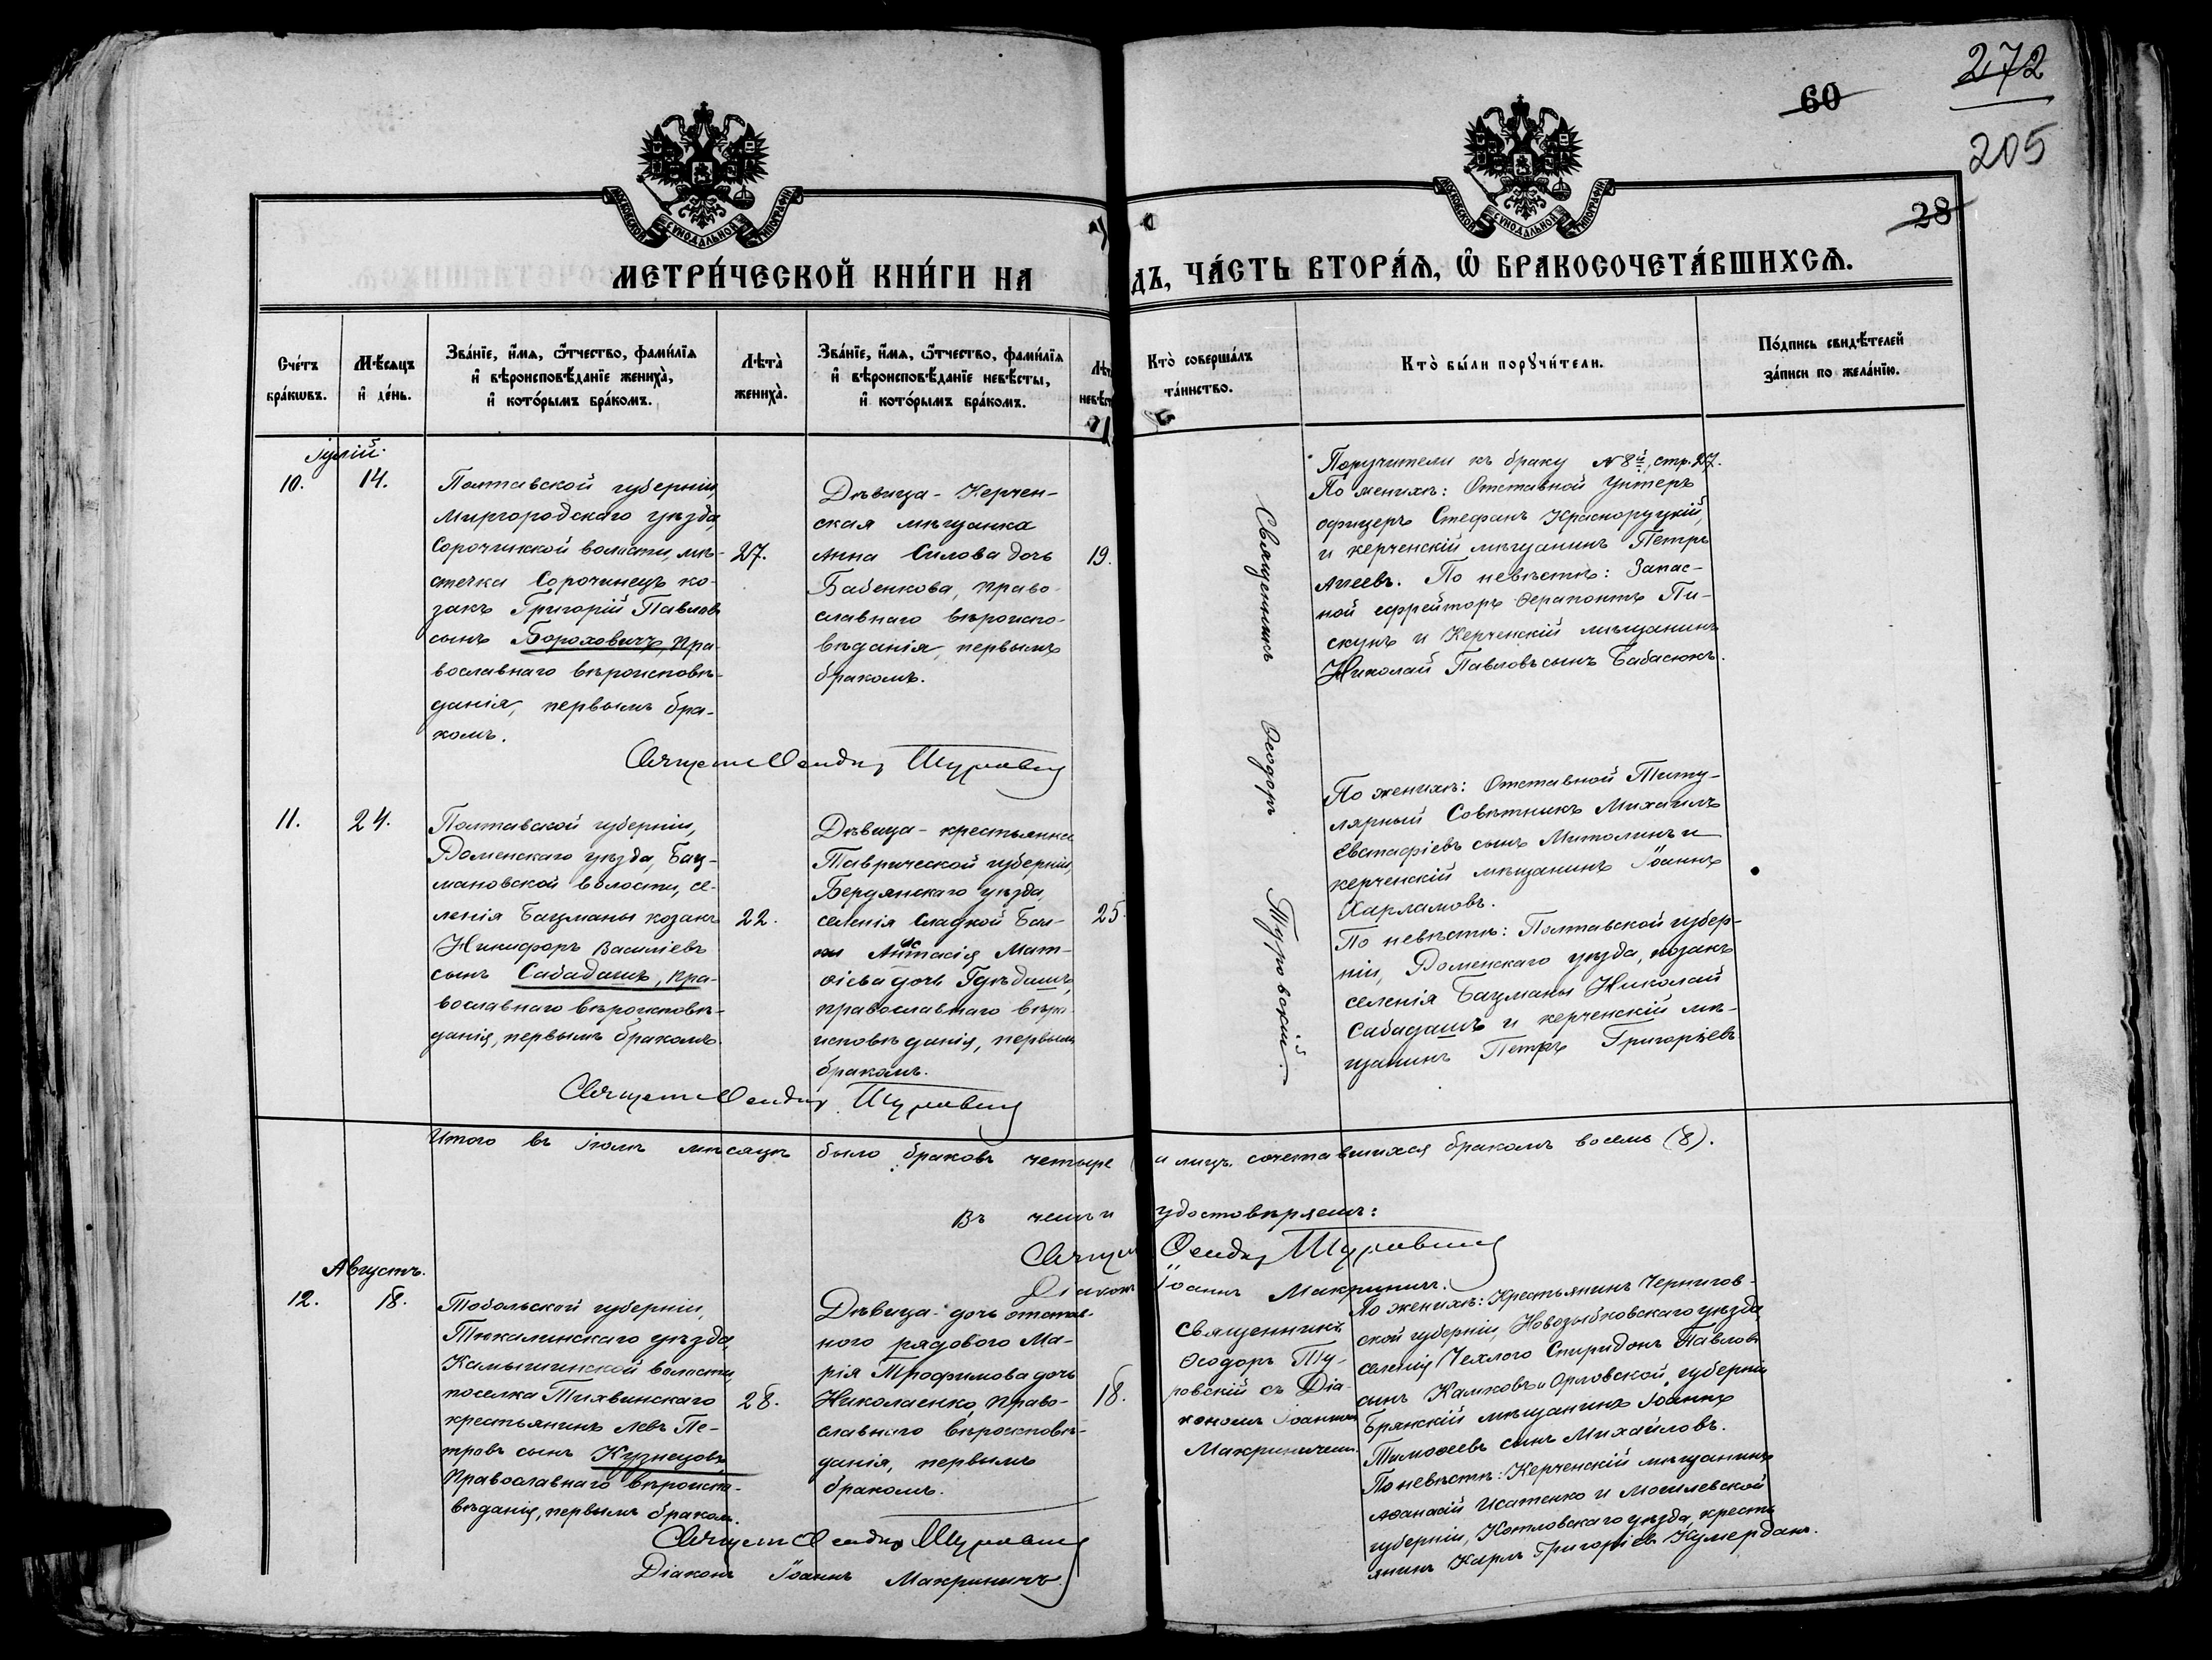 272
205
60
28
МОСКОВСКОЙ СУНОДАЛЬНОЙ ТИПОГРАФІИ
МОСКОВСКОЙ СУНОДАЛЬНОЙ ТИПОГРАФІИ
МЕТРИ́ЧЕСКОЙ КНИ́ГИ НА
ДЪ, ЧА́СТЬ ВТОРА́Я, Ѽ БРАКОСОЧЕТА́ВШИХСЯ.
Сче́тъ
бра́кωвъ.
Мѣ́сяцъ
и҆ де́нь.
Зва́нїе, и҆́мя, ѻ҆́тчество, фами́лїя
и҆ вѣроисповѣ́данїе жениха̀,
и҆ кото́рымъ бра́комъ.
Лѣта̀
жениха̀.
Зва́нїе, и҆́мя, ѻ҆́тчество, фами́лїя
и҆ вѣроисповѣ́данїе невѣ́сты,
и҆ кото́рымъ бра́комъ.
Лѣт
невѣст
Кто̀ соверша́лъ
та́инство.
Кто̀ бы́ли порꙋчи́тели.
По́дпись свидѣ́телей
за́писи по жела́нїю.
Іулій.
10.
14.
Полтавской губерніи,
Миргородскаго уѣзда,
Сорочинской волости, мѣ-
стечка Сорочинецъ ко-
закъ Григорій Павловъ
сынъ Бороховичъ, пра-
вославнаго вѣроисповѣ-
данія, первымъ бра-
комъ.
27.
Дѣвица - Керчен-
ская мѣщанка
Анна Силова дочь
Бабенкова, право-
славнаго вѣроиспо-
вѣданія, первымъ
бракомъ.
19.
Священникъ Ѳеодоръ Туровскій.
Поручители къ браку № 8й, стр. 27.
По женихѣ: Отставной Унтеръ
офицеръ Стефанъ Красноруцкій,
и керченскій мѣщанинъ Петръ
Агеевъ. По невѣстѣ: Запас-
ной ефрейторъ Ѳерапонтъ Пи-
скунъ и Керченскій мѣщанинъ
Николай Павловъ сынъ Бабасюкъ.
11.
24.
Полтавской губерніи,
Роменскаго уѣзда, Бац-
мановской волости, се-
ленія Бацманы козакъ
Никифоръ Василіевъ
сынъ Сабадашъ, пра-
вославнаго вѣроисповѣ-
данія, первымъ бракомъ
22.
Дѣвица - крестьянка
Таврической губерніи,
Бердянскаго уѣзда,
селенія Сладкой Бал-
ки Анастасія Мат-
ѳіева дочь
православнаго вѣро-
исповѣданія, первымъ
бракомъ.
25
По женихѣ: Отставной Титу-
лярный Совѣтникъ Михаилъ
Евстафіевъ сынъ Митолинъ и
керченскій мѣщанинъ Іоаннъ
Харламовъ.
По невѣстѣ: Полтавской губер-
ніи, Роменскаго уѣзда, козакъ
селенія Бацманы Николай
Сабадашъ и керченскій мѣ-
щанинъ Петръ Григорьевъ
Итого въ іюлѣ мѣсяцѣ было браковъ четыре и лицъ сочетавшихся бракомъ восемь (8).
Въ чемъ и удостовѣряемъ:
Діаконъ Іоаннъ Макриничъ.
Августъ.
12.
18.
Тобольской губерніи,
Тюкалинскаго уѣзда,
Камышинской волости,
поселка Тихвинскаго
крестьянинъ Левъ Пе-
тровъ сынъ Кузнецовъ
православнаго вѣроиспо-
вѣданія, первымъ браком.
28.
Дѣвица - дочь отстав-
ного рядового Ма-
рія Трофимова дочь
Николаенко, право-
славнаго вѣроисповѣ-
данія, первымъ
бракомъ.
18.
Священникъ
Ѳеодоръ Ту-
ровскій съ Діа-
кономъ Іоанномъ
Макриничемъ.
По женихѣ: Крестьянинъ Чернигов-
ской губерніи, Новозыбковскаго уѣзда,
селенія Чехлого Спиридонъ Павловъ
сынъ Камковъ и Орловской губерніи
Брянскій мѣщанинъ Іоаннъ
Тимоѳеевъ сынъ Михайловъ.
По невѣстѣ: Керченскій мѣщанинъ
Аѳанасій Исатенко и Могилевской
губерніи, уѣзда, кресть
янинъ Карлъ Григоріев Кумерданъ.
Діаконъ Іоаннъ Макриничъ